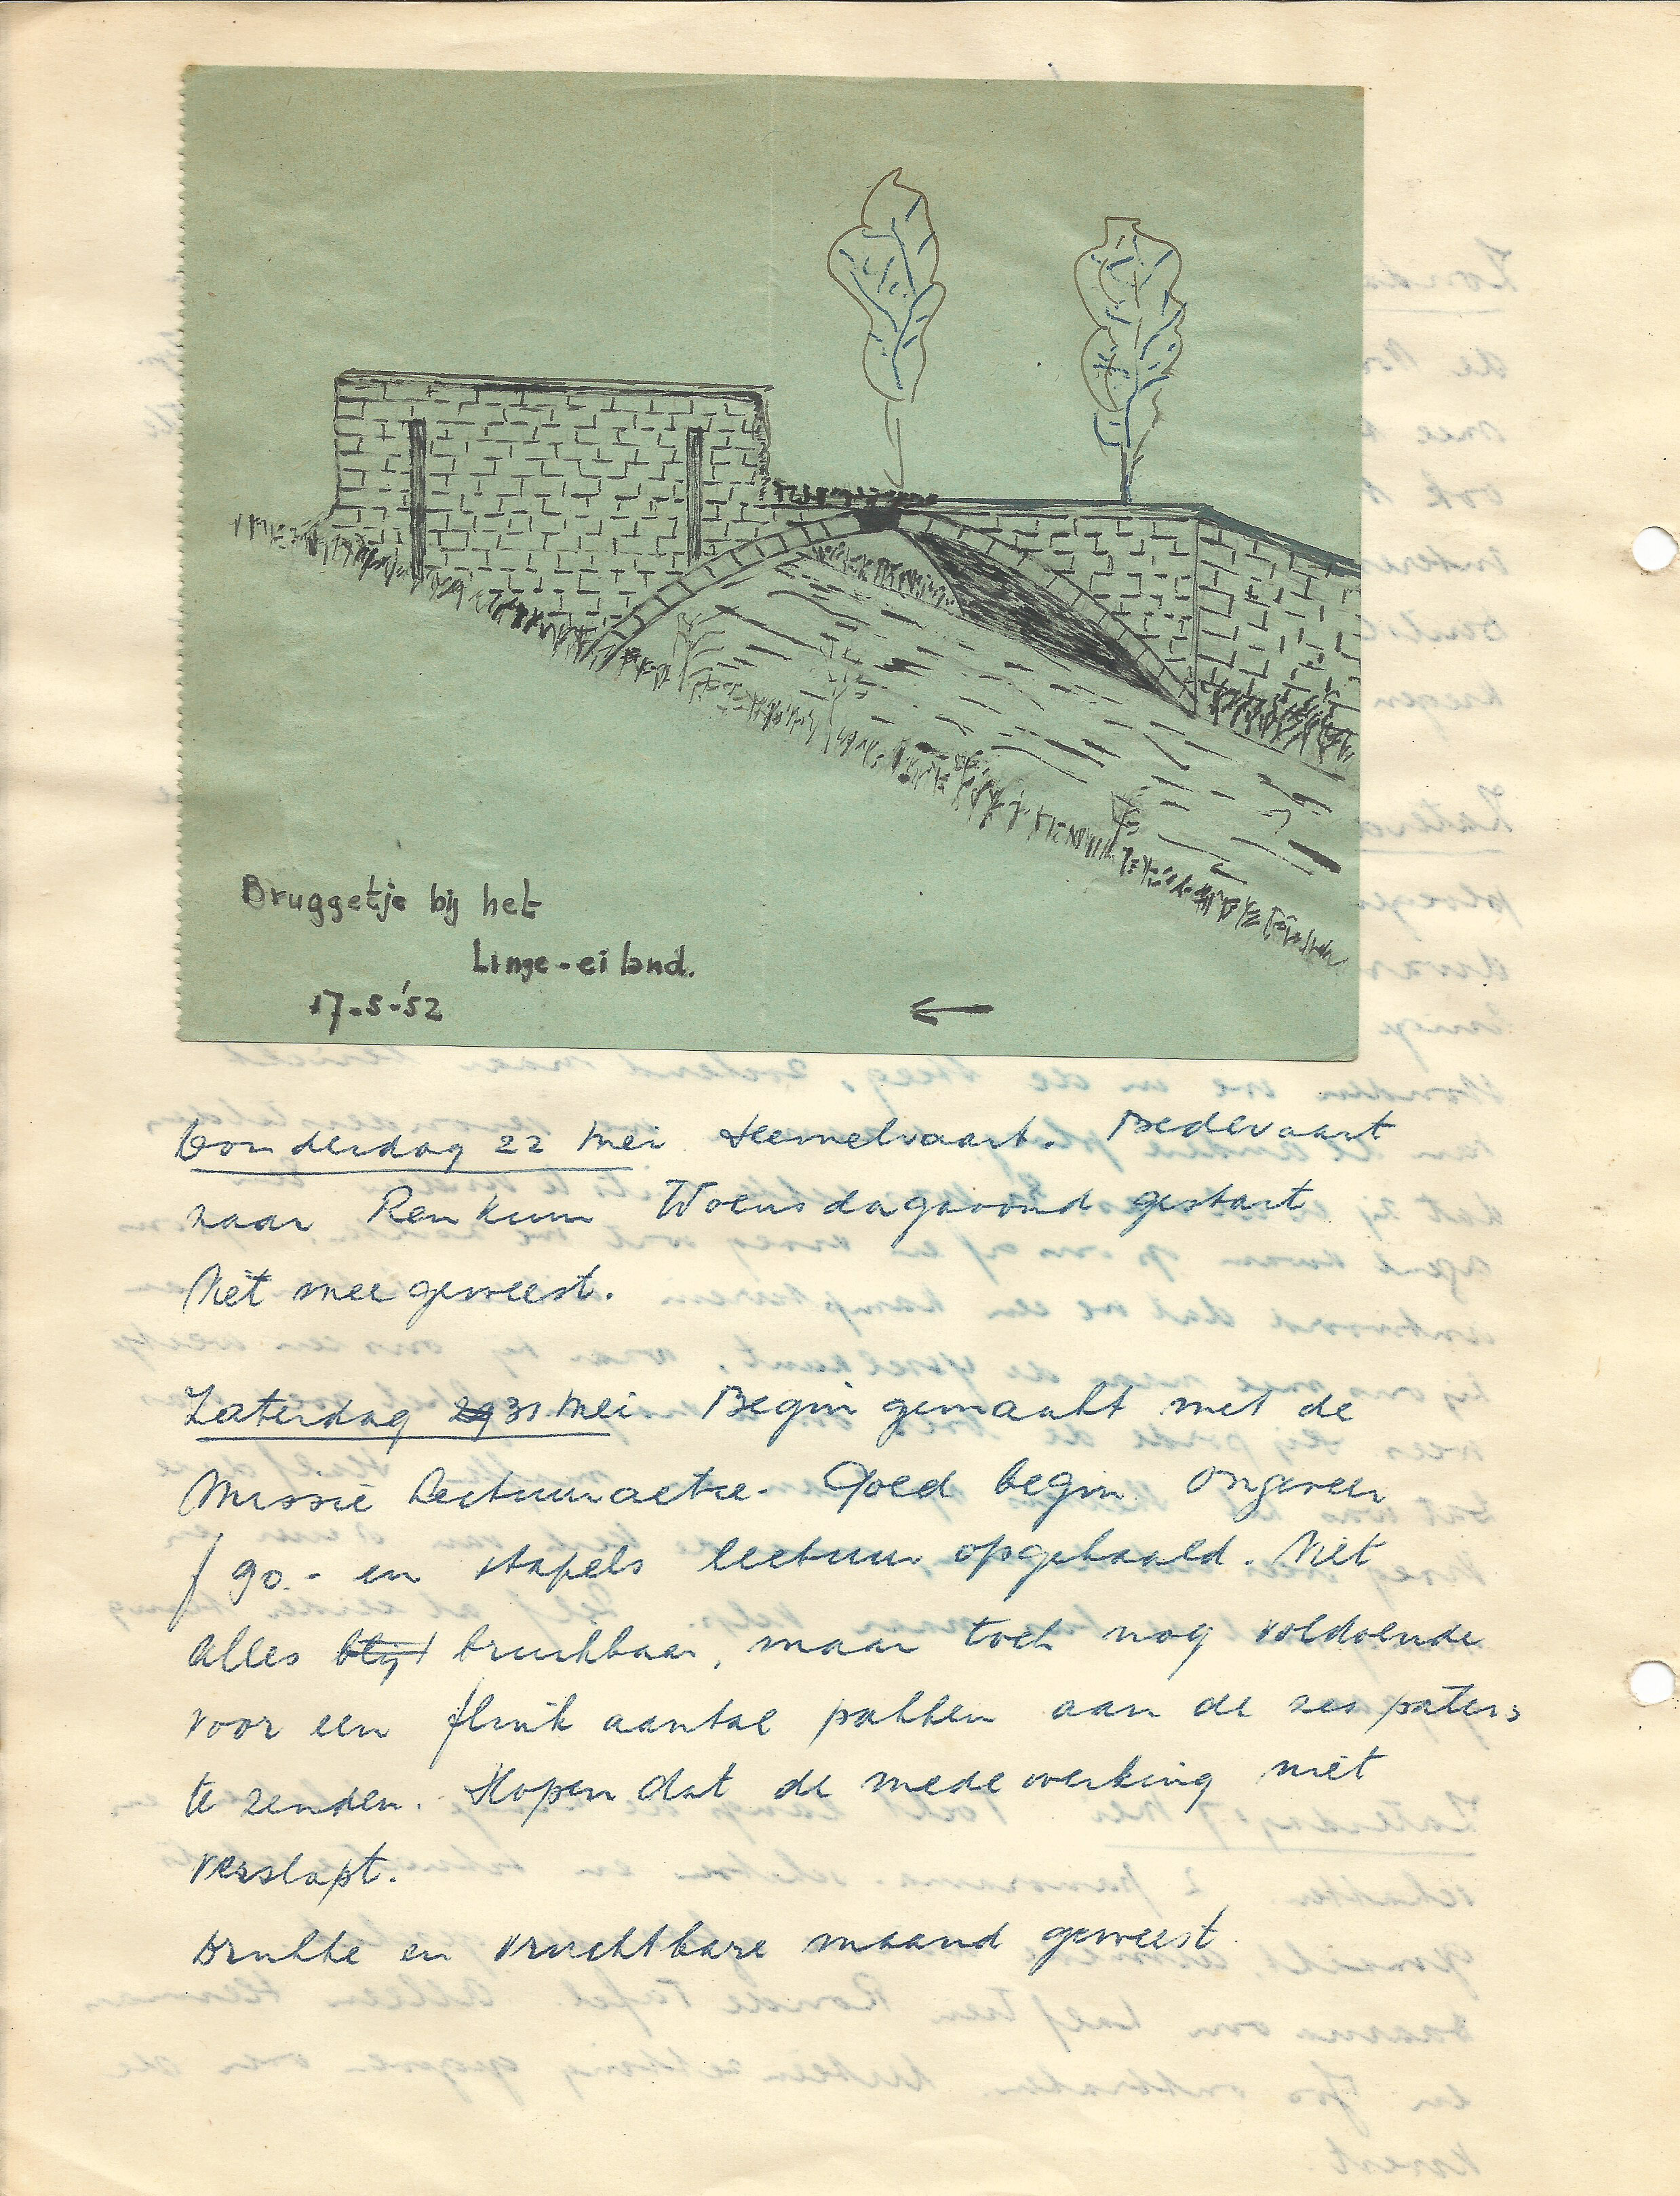 Bruggetje bij het
Linge-eiland.
17-5-'52
Donderdag 22 Mei Hemelvaart. Bedevaart
naar Renkum Woensdagavond gestart
Niet mee geweest.
Zaterdag 29 31 Mei Begin gemaakt met de
Missie Lectuuractie. Goed begin. Ongeveer
f 90.- en stapels lectuur opgehaald. Niet
alles blijt bruikbaar, maar toch nog voldoende
voor een flink aantal pakken aan de zes paters
te zenden. Hopen dat de medewerking niet
verslapt.
Drukke en vruchtbare maand geweest.